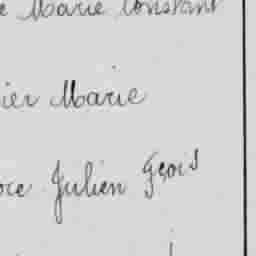 e Marie Constant
ier Marie
oce Julien